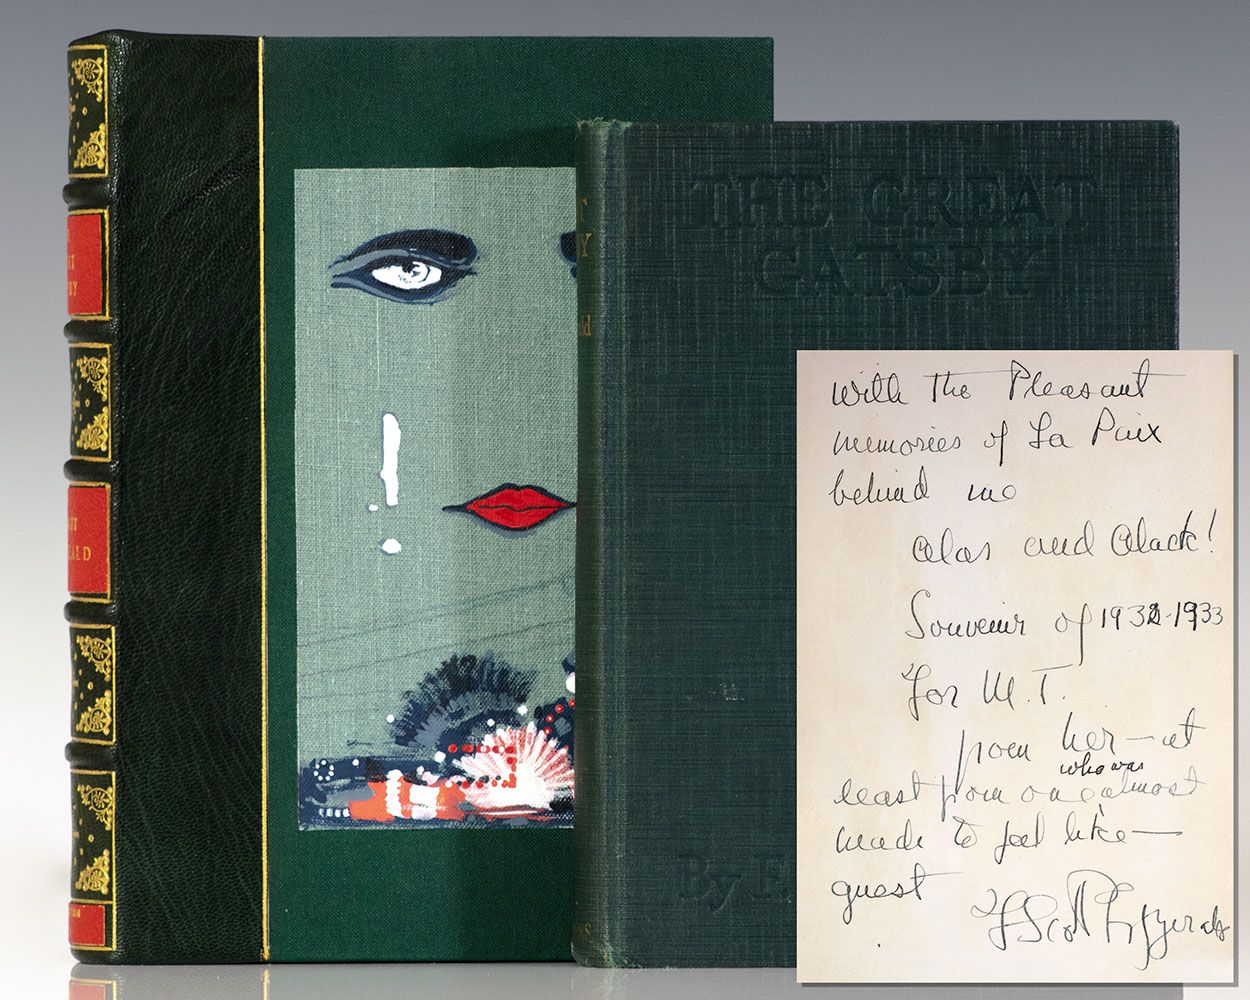 THE GREAT
GATSBY
By F.
BY
ALD
with the Pleasant
memories of La Paix
behind me
alas and alack!
Souvenir of 1932-1933
For M.T.
from her — at
who was
least from one almost
made to feel like —
guest
F Scott Fitzgerald